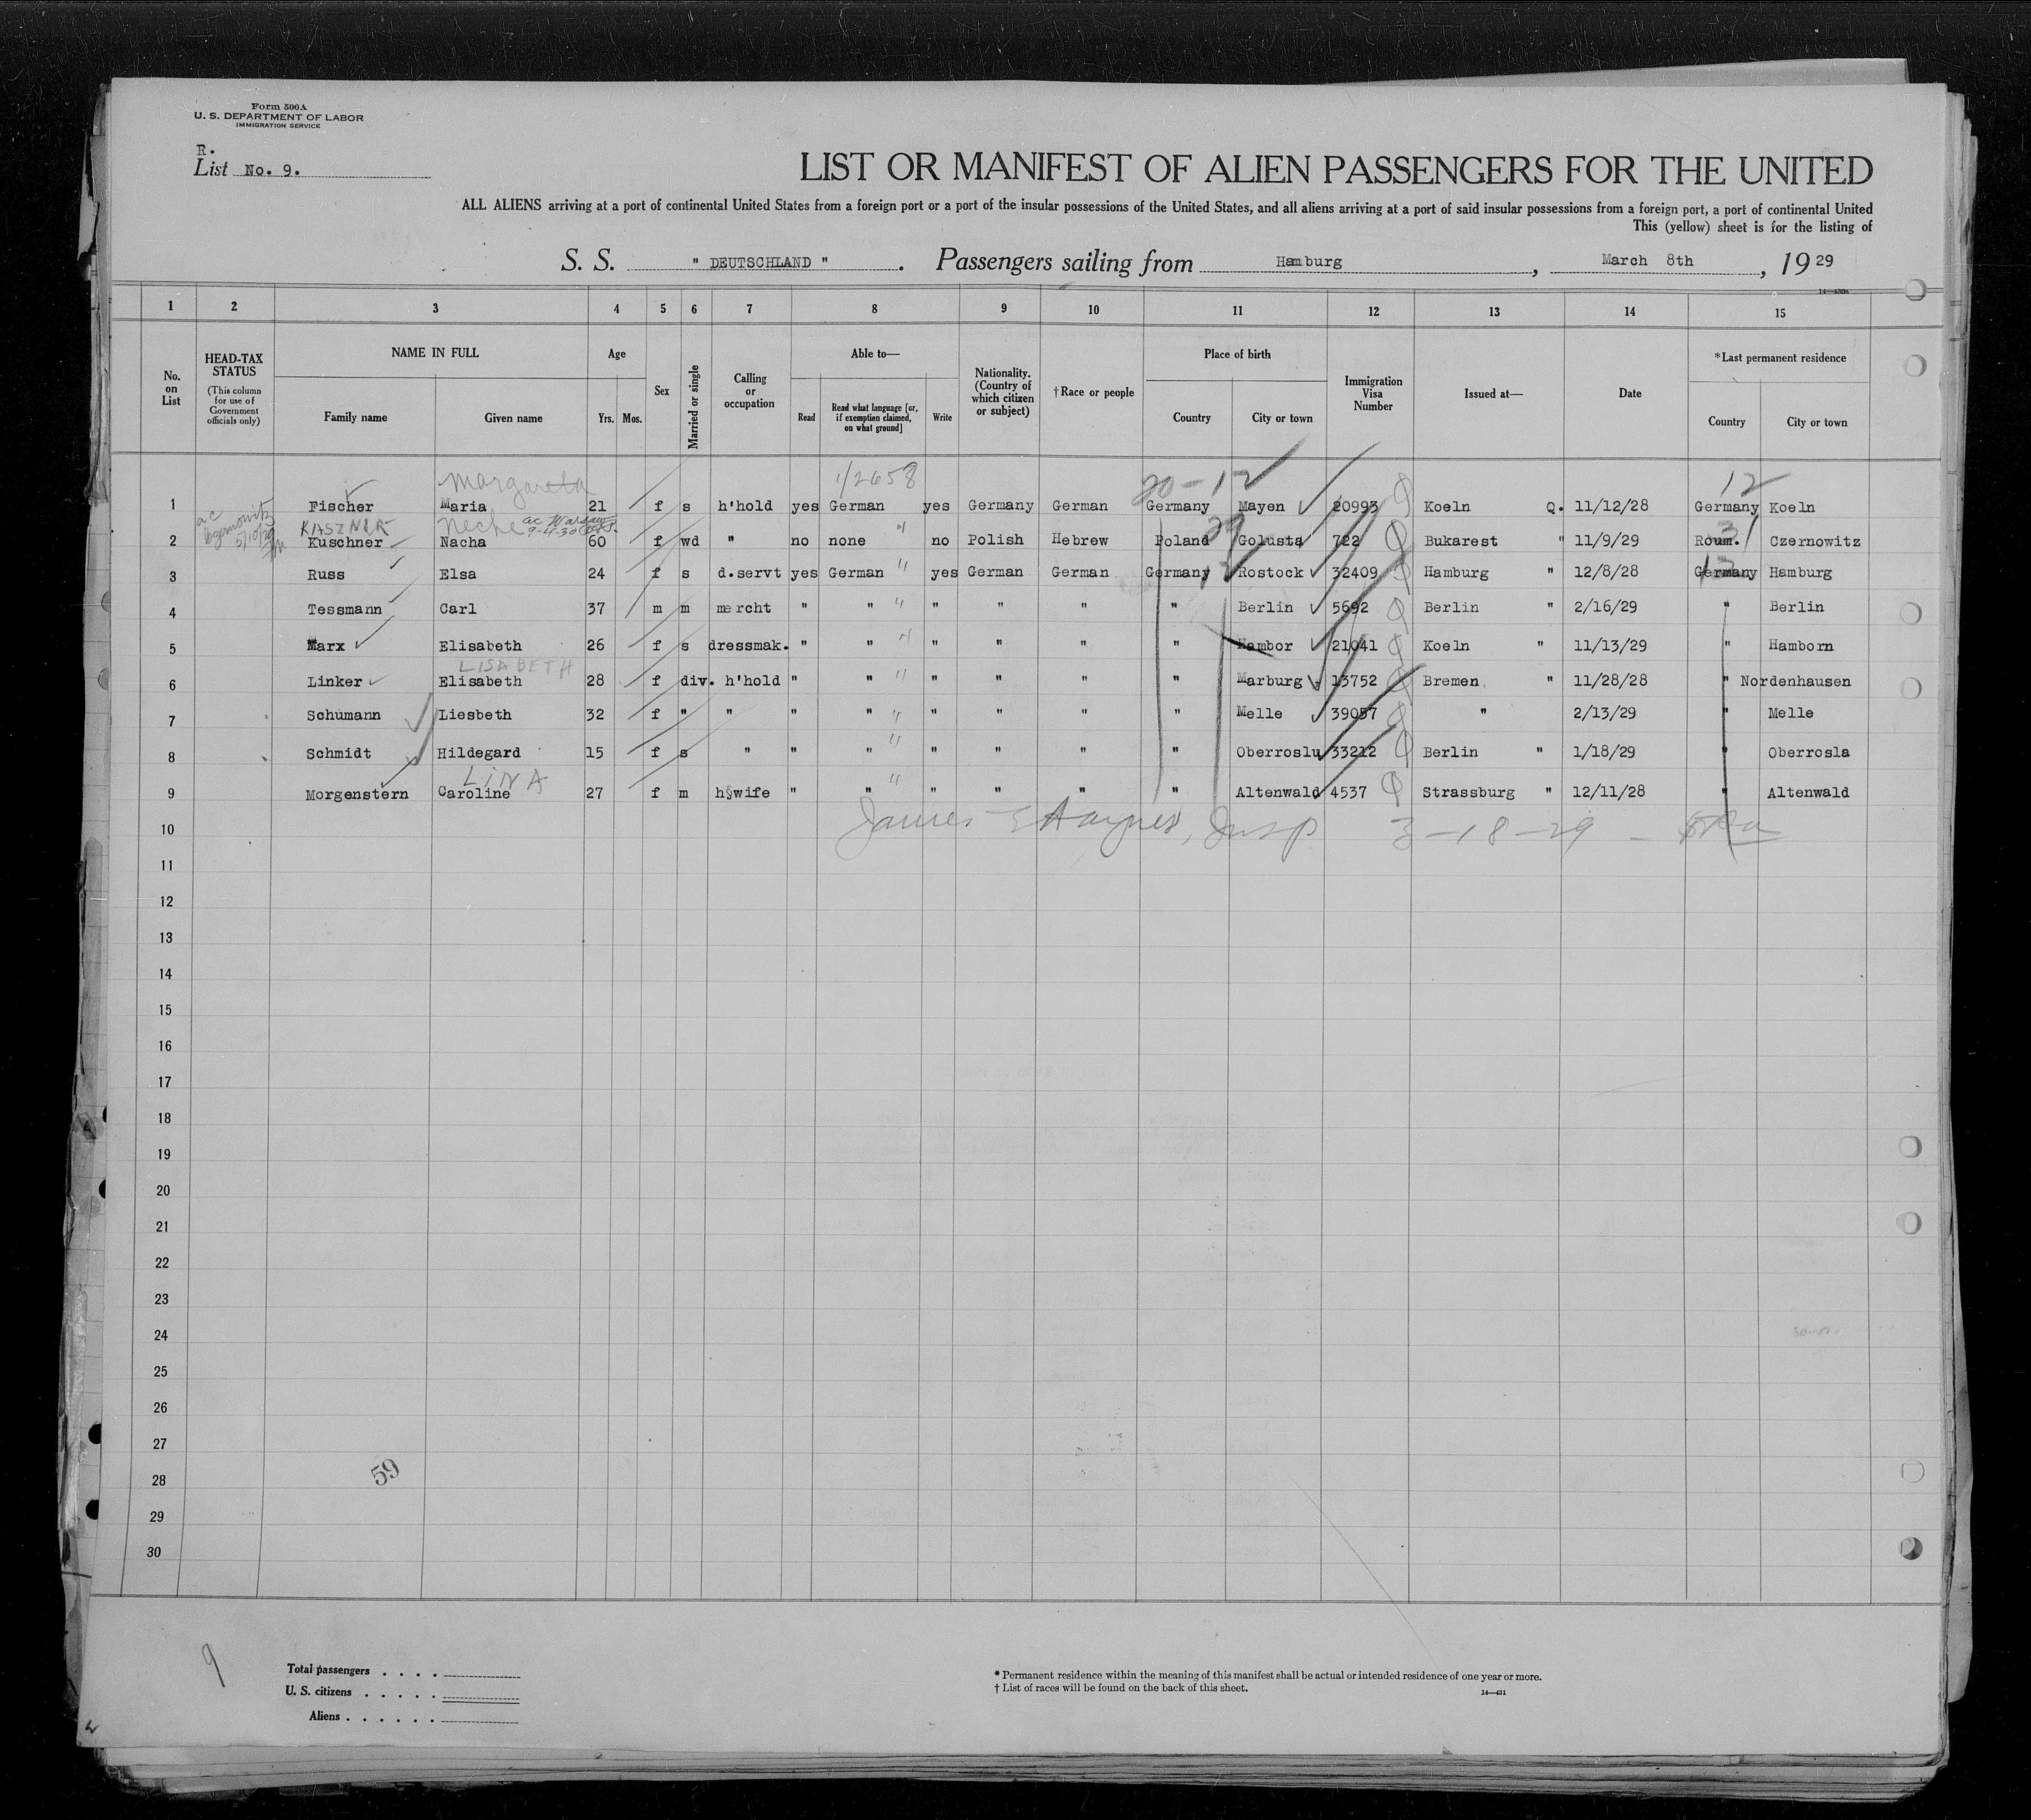 Form 500A
U. S. DEPARTMENT OF LABOR
IMMIGRATION SERVICE
R.
List No. 9.
LIST OR MANIFEST OF ALIEN PASSENGERS FOR THE UNITED
ALL ALIENS arriving at a port of continental United States from a foreign port or a port of the insular possessions of the United States, and all aliens arriving at a port of said insular possessions from a foreign port, a port of continental United
This (yellow) sheet is for the listing of
S. S. " DEUTSCHLAND " . Passengers sailing from Hamburg , March 8th , 19 29
1 2 3 4 5 6 7 8 9 10 11 12 13 14 15
No. on List
HEAD-TAX STATUS (This column for use of Government officials only)
NAME IN FULL Family name Given name
Age Yrs. Mos.
Sex
Married or single
Calling or occupation
Able to— Read Read what language [or, if exemption claimed, on what ground] Write
Nationality. (Country of which citizen or subject)
†Race or people
Place of birth Country City or town
Immigration Visa Number
Issued at—
Date
*Last permanent residence Country City or town
Margareta 1/2658 20-12 12
1 Fischer Maria 21 f s h'hold yes German yes Germany German Germany Mayen 20993 Koeln Q. 11/12/28 Germany Koeln
KIASZNER Neche ac Warsaw 9-4-30
2 Kuschner Nacha 60 f wd " no none " no Polish Hebrew Poland Golusta 722 Bukarest " 11/9/29 Roum. Czernowitz
3 Russ Elsa 24 f s d.servt yes German " yes German German Germany Rostock 32409 Hamburg " 12/8/28 Germany Hamburg
4 Tessmann Carl 37 m m mercht " " " " " " " Berlin 5692 Berlin " 2/16/29 " Berlin
5 Marx Elisabeth 26 f s dressmak. " " " " " " " Hambor 21041 Koeln " 11/13/29 " Hamborn
LISABETH
6 Linker Elisabeth 28 f div. h'hold " " " " " " " Marburg 13752 Bremen " 11/28/28 " Nordenhausen
7 Schumann Liesbeth 32 f " " " " " " " " " Melle 39057 " 2/13/29 " Melle
8 Schmidt Hildegard 15 f s " " " " " " " " Oberroslu 33212 Berlin " 1/18/29 " Oberrosla
LINA
9 Morgenstern Caroline 27 f m h§wife " " " " " " " Altenwald 4537 Strassburg " 12/11/28 " Altenwald
James E Haynes, Insp 3-18-29
10
11
12
13
14
15
16
17
18
19
20
21
22
23
24
25
26
27
28
59
29
30
9
Total passengers . . . .
U. S. citizens . . . . .
Aliens . . . . . .
* Permanent residence within the meaning of this manifest shall be actual or intended residence of one year or more.
† List of races will be found on the back of this sheet.
14—431